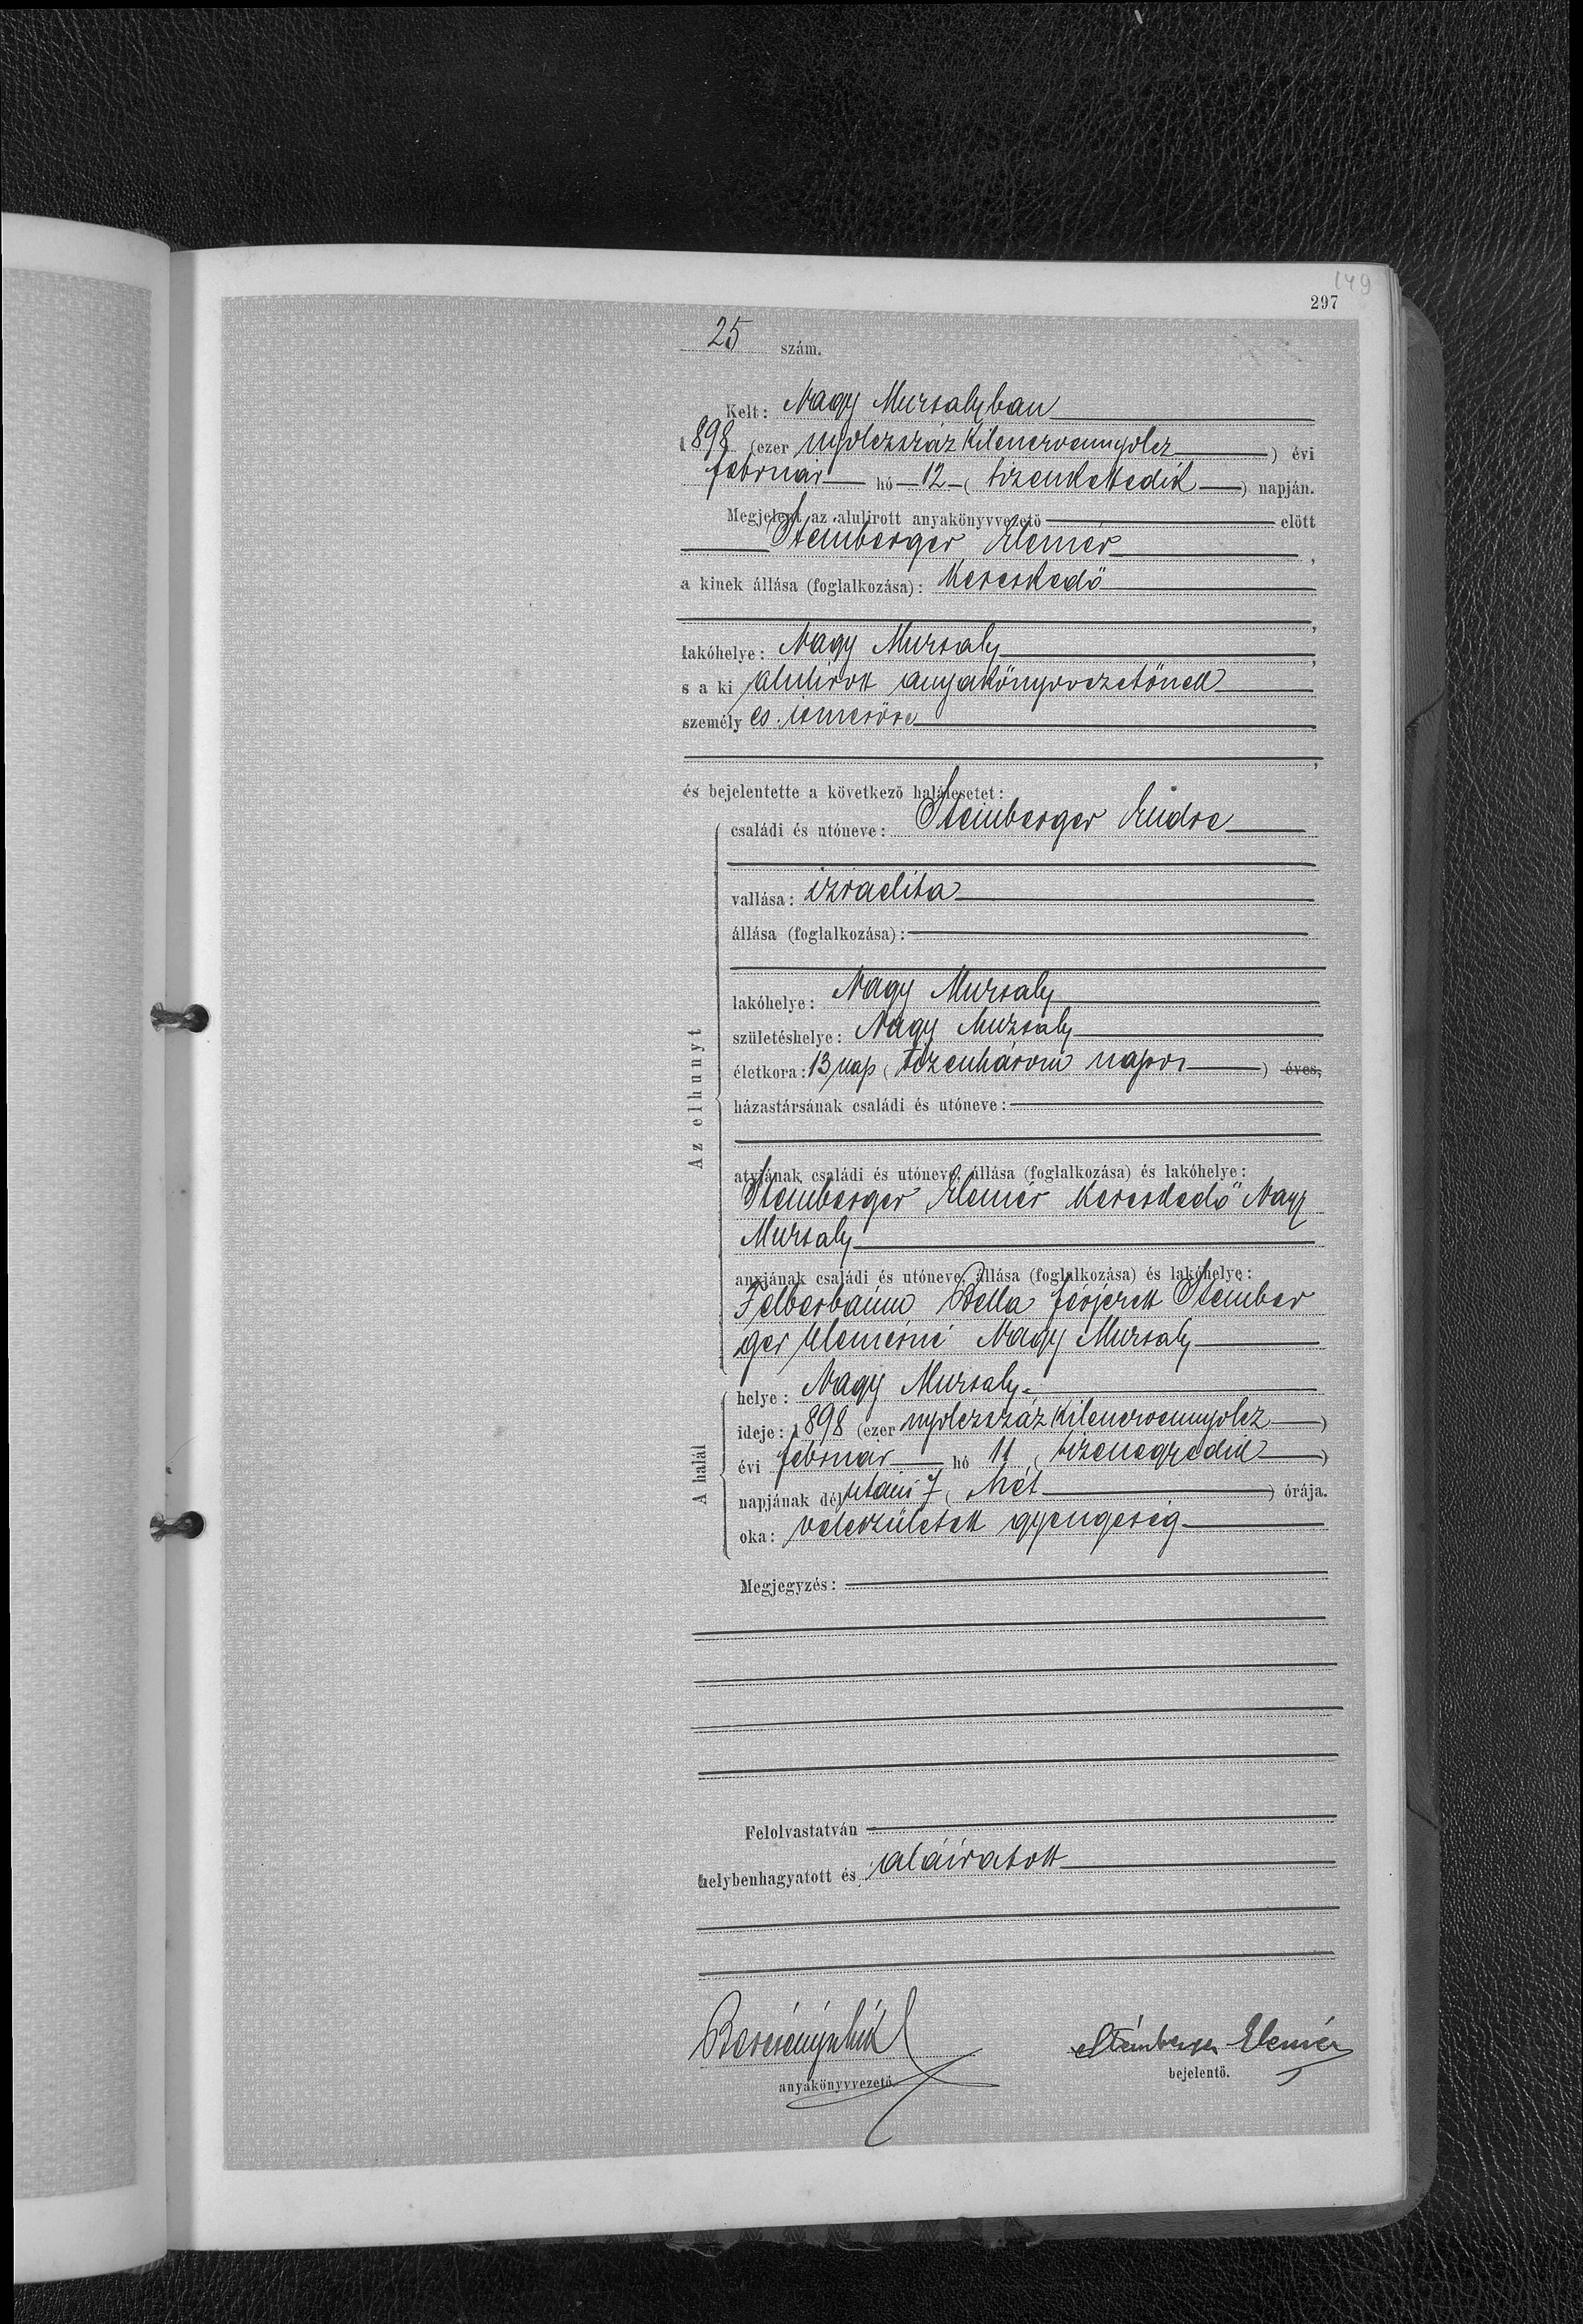 149
297
25 szám.
Kelt: Nagy Mursalyban
1898 (ezer nyolczszáz kilenczvennyolcz) évi
február hó 12 (tizenkettedik) napján.
Megjelent az alulirott anyakönyvvezető előtt
Steinberger Elemér,
a kinek állása (foglalkozása): kereskedő
,
lakóhelye: Nagy Mursaly,
s a ki alulirott anyakönyvvezetőnek
személyes ismerőse
,
és bejelentette a következő halálesetet:
családi és utóneve: Steinberger Endre
vallása: izraelita
állása (foglalkozása):
lakóhelye: Nagy Mursaly
születéshelye: Nagy Mursaly
életkora: 13 nap (tizenhárom napos) éves,
házastársának családi és utóneve:
Az elhunyt
atyjának családi és utóneve, állása (foglalkozása) és lakóhelye:
Steinberger Elemér kereskedő Nagy
Mursaly
anyjának családi és utóneve, állása (foglalkozása) és lakóhelye:
Felberbaum Bella férjezett Steinber
ger Elemérné Nagy Mursaly
helye: Nagy Mursaly.
ideje: 1898 (ezer nyolczszáz kilenczvennyolcz)
évi február hó 11 (tizenegyedik)
A halál
napjának délutáni 7 (hét) órája.
oka: veleszületett gyengeség
Megjegyzés:
Felolvastatván
helybenhagyatott és aláiratott
Steinberger Elemér
anyakönyvvezető.
bejelentő.